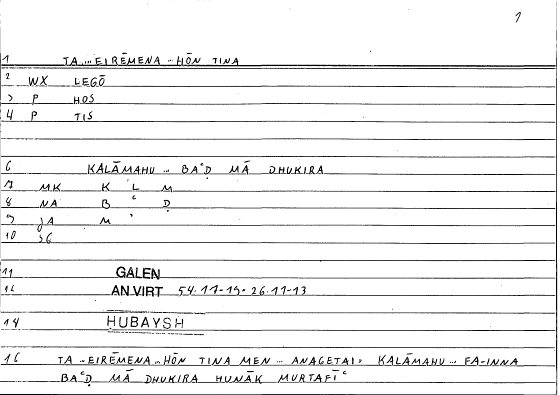 1
1 TA ... EIRĒMENA ... HŌN TINA
2 WX LEGŌ
3 P HOS
4 P TIS
6 KALĀMAHU ... BAʿḌ MĀ DHUKIRA
7 MK K L M
8 NA B ʿ Ḍ
9 JA M ʾ
10 SG
11 GALEN
12 AN.VIRT 54.17-19 · 26.11-13
14 HUBAYSH
16 TA ... EIRĒMENA ... HŌN TINA MEN ... ANAGETAI: KALĀMAHU ... FA-INNA
BAʿḌ MĀ DHUKIRA HUNĀK MURTAFIʿ